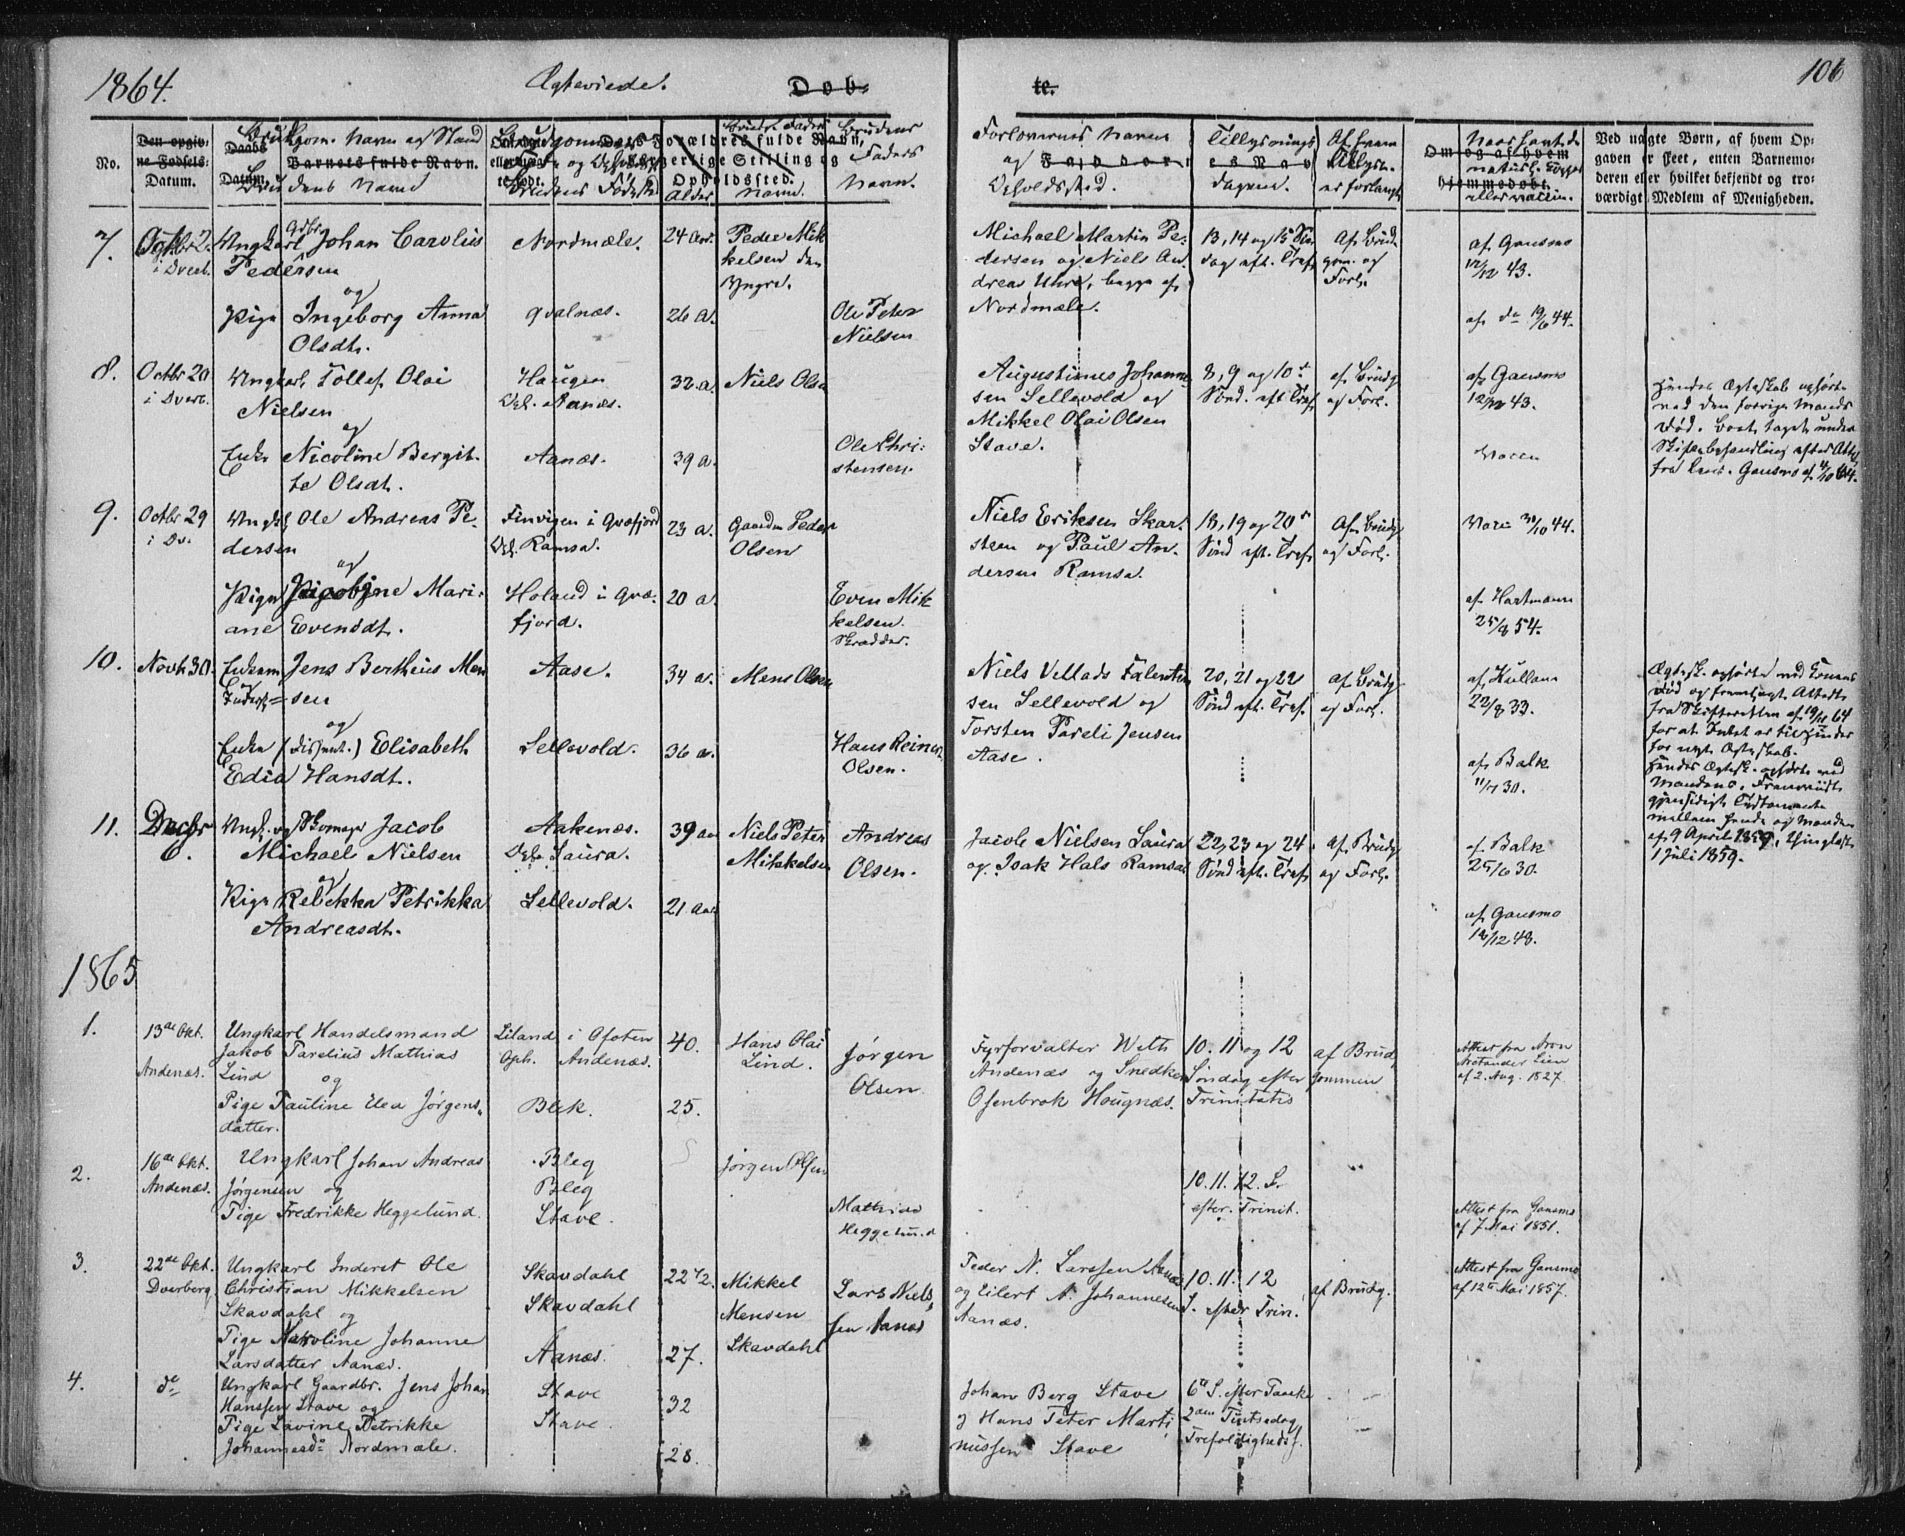 1864.
Ægteviede.
Døb-
te.
106
No.
Den opgiv-
ne Fødsels-
Datum.
Daabs
Datum.
Brudgom. Navn og Stand
Barnets fulde Navn.
dens Navn
Forældres fulde Navn,
borgerlige Stilling og
Opholdssted.
Alder
Navn.
Brudens
Faders
Navn.
Forlovernes Navne
og
Fadderes Nav
Opholdssted.
Tillysnings
dagene.
Af hvem
Tillysn.
er forlangt
Om og af hvem
hjemmedøbt.
naturl. Kopper
eller vaccin.
Ved uægte Børn, af hvem Op-
gaven er skeet, enten Barnemo-
deren eller hvilket bekjendt og tro-
værdigt Medlem af Menigheden.
7.
Octbr 2.
i Dverb.
Ungkarl Gdbr. Johan Carolus
Pedersen
og
Pige Ingeborg Anna
Olsdt.
Nordmæle.
Qvalnæs.
24 Aar.
26 A.
Peder Mik
kelsen den
Yngre.
Ole Peter
Nielsen
Michael Martin Pe-
dersen og Niels An-
dreas Uhre, begge af
Nordmæle.
13, 14 og 15 Søn
dag eft. Tref.
Af Brud
gom. og
Forl.
af Gausmo
12/12 43.
af do 19/6 44.
8.
Octbr 20
i Dverb.
Ungkarl Tollef Olai
Nielsen
og
Enke Nicoline Bergit-
te Olsdt.
Haugen
Oph. Aanæs.
Aanæs.
32 a.
39 a.
Niels Olsen
Ole Chri-
stensen.
Augustinus Johanne
sen Sellevold og
Mikkel Olai Olsen
Stave.
8, 9 og 10de
Sønd. eft. Tref.
af Brudg
og Forl.
af Gausmo
12/12 43.
Hendes Ægteskab ophørt
ved den forrige Mands
Død. Boet taget under
Skiftebehandling efter Attest
9.
Octbr 29
i Dv.
Ungk. Ole Andreas Pe-
dersen
og
Pige Jacobine Mari-
ane Evensdt.
Finvigen i Qvæfjord
Oph. Ramsa.
Holand i Qvæ-
fjord.
23 a.
20 a.
Gaardm Peder
Olsen
Even Mik
kelsen.
Skrædder.
Niels Eriksen Skar-
steen og Paul An-
dersen Ramsa.
18, 19 og 20de
Sønd eft. Tref.
Af Brudg
og Forl.
30/10 44.
af Hartmann
25/8 54.
10.
Novbr 30.
Enkem Jens Bertheus Men
sen
og
Enke (Dissent.) Elisabeth
Edia Hansdt.
Aase.
Sellevold.
34 a.
36 a.
Mens Olsen
Hans Reiner
Olsen.
Niels Vellads Falentin
sen Sellevold og
Torsten Pareli Jensen
Aase.
20, 21 og 22
Sønd eft. Tref.
af Brudg
og Forl.
22/8 33.
af Balk
11/7 30.
Ægtesk. ophørte ved Konens
Død og fremlagt Attest
fra Skifteretten af 19/11 64
for at Intet er til Hinder
for nyt Ægteskab.
Hendes Ægtesk. ophørte ved
Mandens. Fremviist
gjensidigt Testamente
mellem hende og Manden
af 9 April 1859, thinglæst
1 Juli 1859.
11.
Decbr
6.
Ungk. og Skomager Jacob
Michael Nielsen
og
Pige Rebekka Petrikka
Andreasdt.
Aakenæs.
Oph. Saura.
Sellevold.
39 aar
21 Aar
Niels Peter
Mikkelsen
Andreas
Olsen.
Jacob Nielsen Saura
og Isak Hals Ramsaa
22, 23 og 24
Sønd eft. Tref.
af Brudg
og Forl.
af Balk
25/6 30.
af Gausmo
18/12 48.
1865
1.
13de Okt.
Andenæs.
Ungkarl Handelsmand
Jakob Parelius Mathias
Lind
og
Pige Pauline Elea Jørgens-
datter.
Liland i Ofoten
Oph. Andenæs.
Blek.
40.
25.
Hans Olai
Lind.
Jørgen
Olsen
Fyrforvalter Weth
Andenæs og Snedker
Osenbrok Hougnæs.
10. 11 og 12
Søndag efter
Trinitatis
af Brud
gommen
Attest fra Aron
af 2. Aug. 1827.
2.
16de Okt.
Andenæs.
Ungkarl Johan Andreas
Jørgensen og
Pige Fredrikke Heggelund.
Bleg
Bleg
Stave.
Jørgen Olsen
Mathias
Heggelund
10. 11. 12. S.
efter. Trinit.
Attest fra Gausmo
af 7 Mai 1851.
3.
22de Okt.
Dverberg
Ungkarl Inderst Ole
Christian Mikkelsen
Skavdahl og
Pige Karoline Johanne
Larsdatter Aanæs.
Skavdahl
Skavdahl
Aanæs.
22 1/2.
27.
Mikkel
Mensen
Skavdahl
Lars Niel-
sen Aanæs
Peder N. Larssen Aanæs
og Eilert N. Johannesen
Aanæs.
10. 11. 12
S. efter Trin.
af Brudg.
Attest fra Gausmo
af 12te Mai 1857.
4.
do
Ungkarl Gaardbr. Jens Johan
Hanssen Stave og
Pige Lavine Petrikke
Johannesdr Nordmæle.
Stave
Stave
32
28.
Johan Berg Stave
og Hans Peter Marti
nussen Stave
6te S. efter Paaske
2den Pintsedag
Trefoldighedsf.